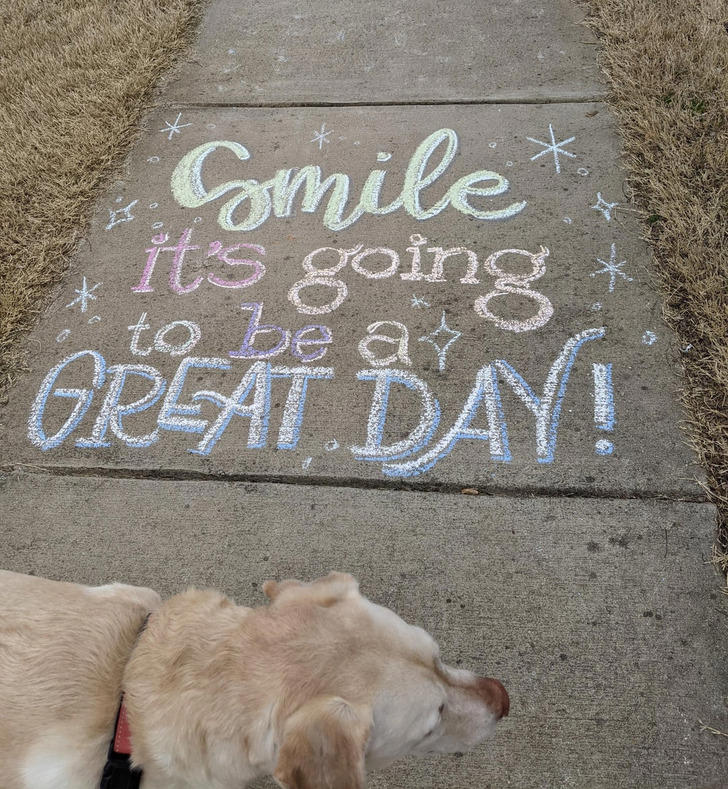 Smile
it's going
to be a
GREAT DAY!